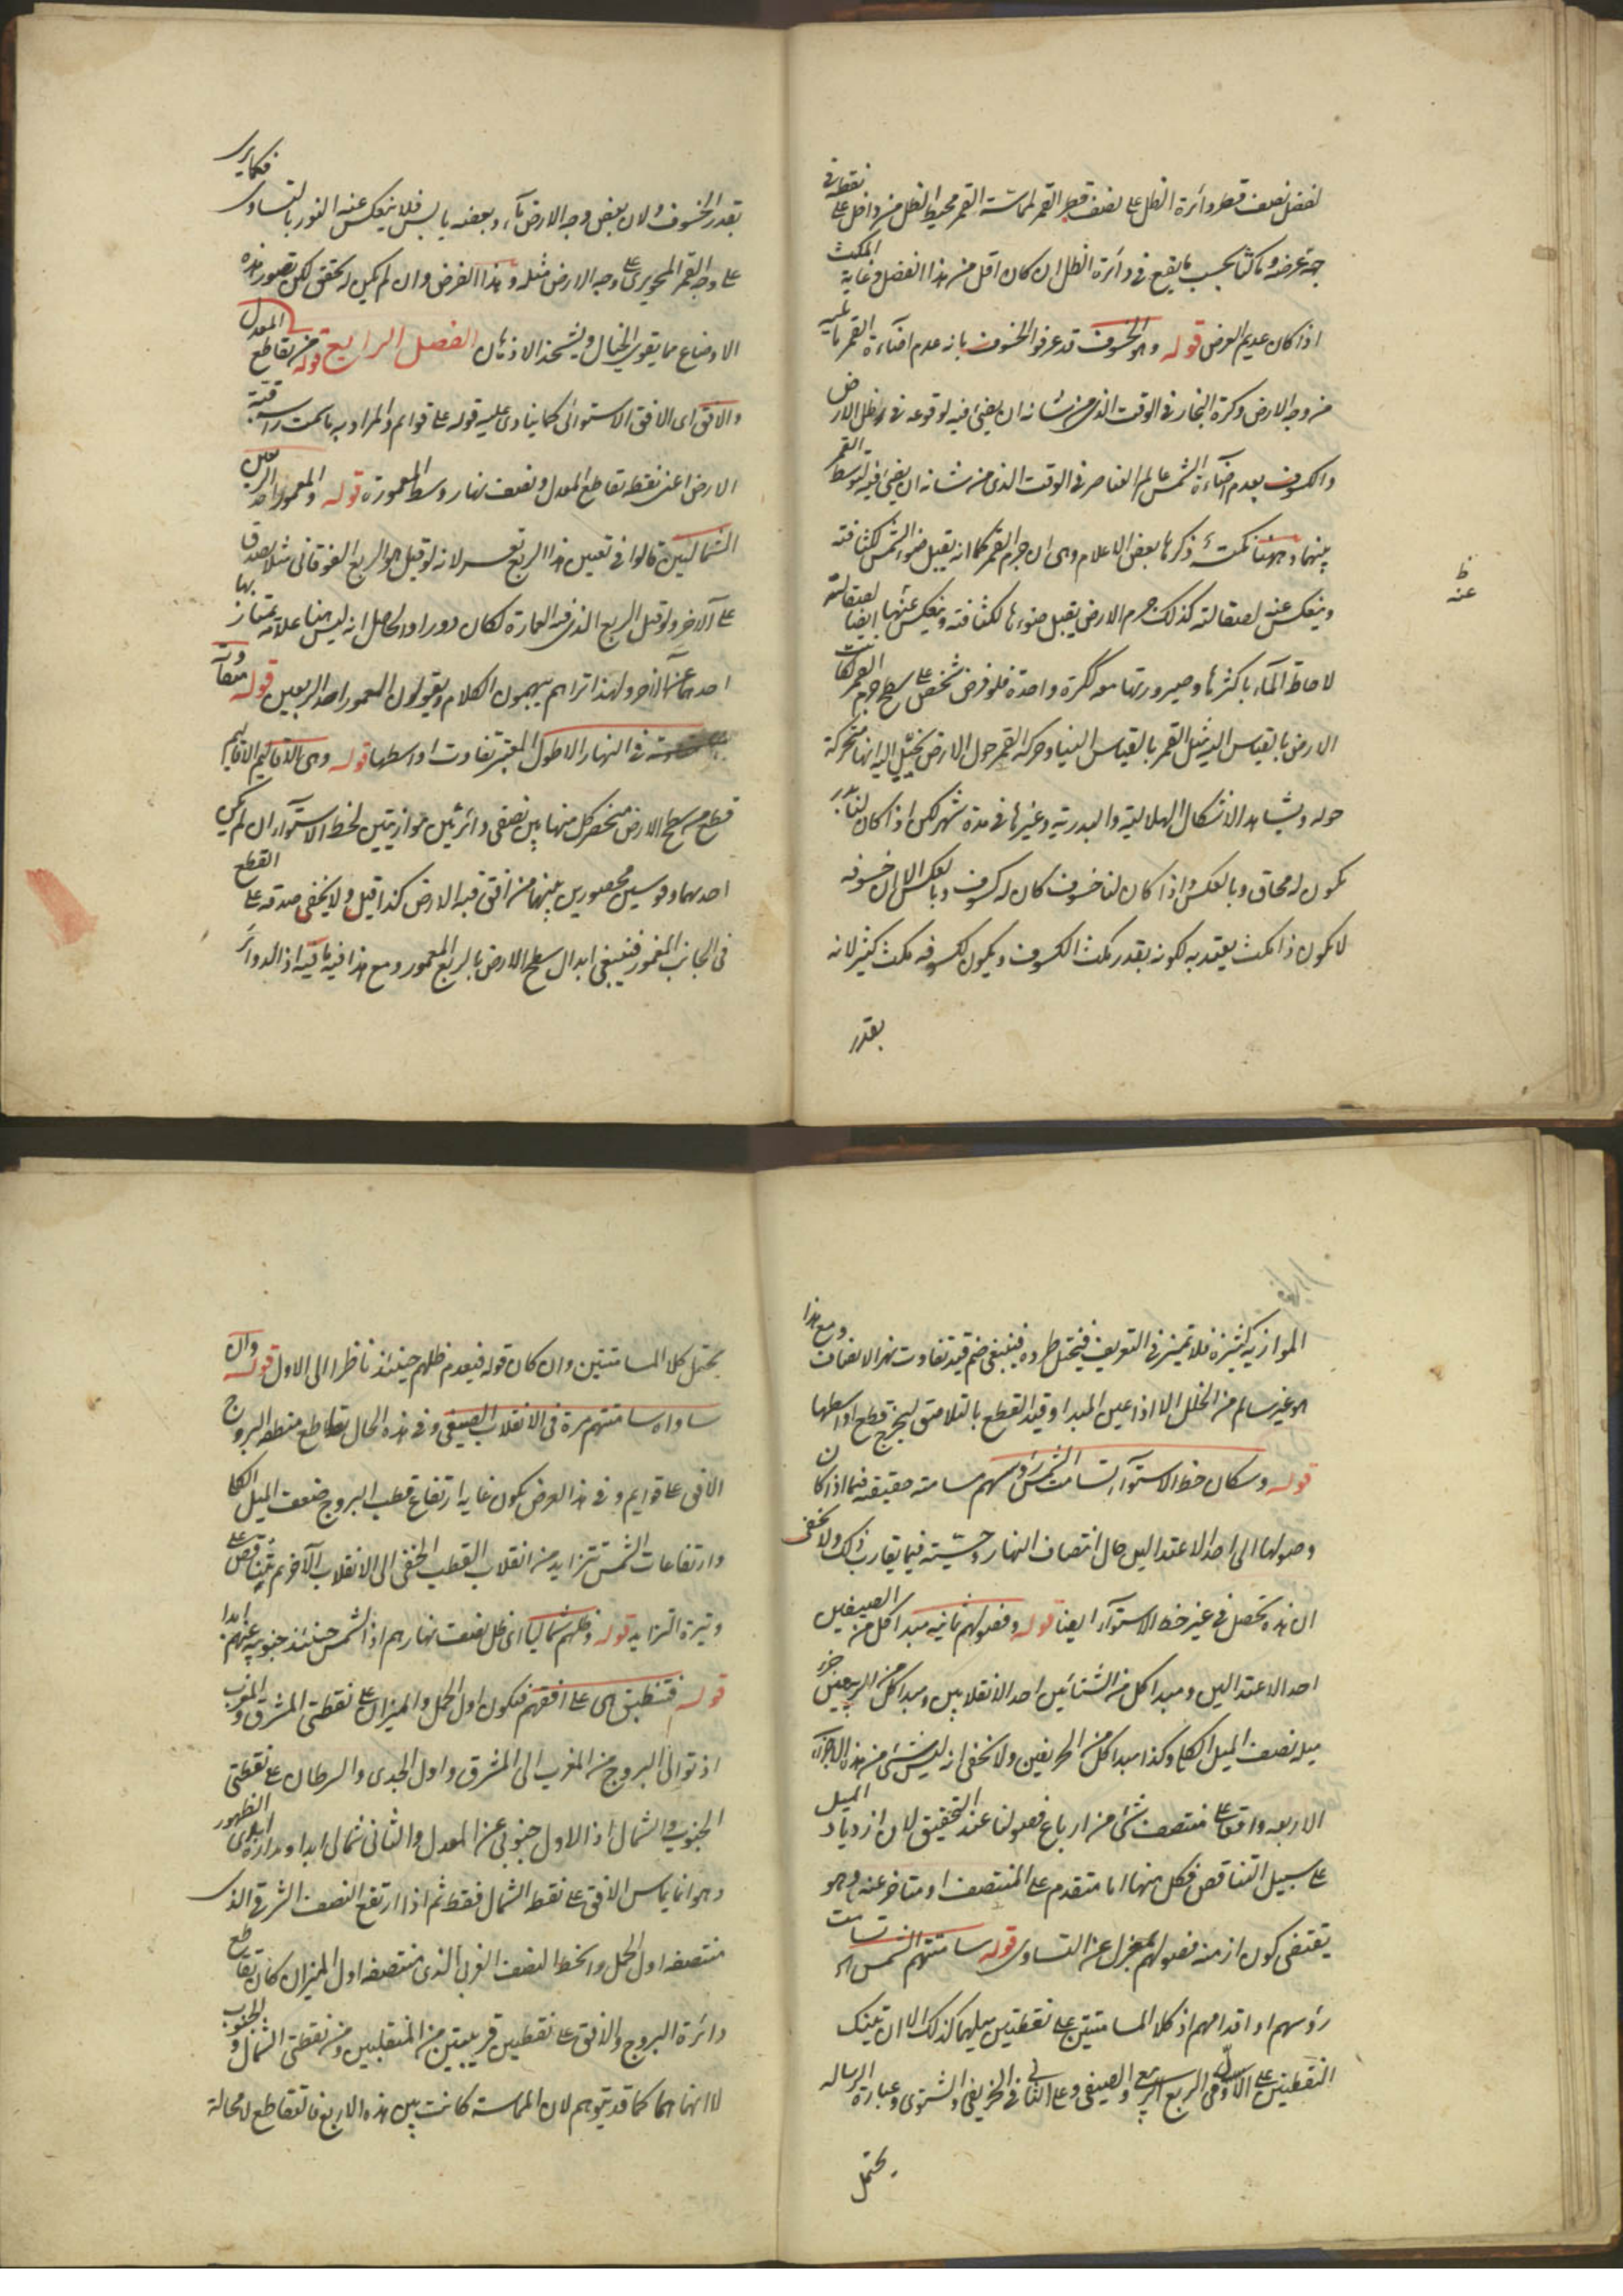 لفضل نصف قطر دائرة الظل على نصف قطر القمر لماسة القمر محيط الظل من داخل على نقطة في
جهة عرضه وماكثا بحسب ما يقع في دائرة الظل ان كان اقل من هذا الفضل وغاية المكث
اذا كان عديم العرض قوله وهو الخسوف قد عرفوا الخسوف بانه عدم اضاءة القمر ما يليه
من وجه الارض وكرة البخار في الوقت الذي من شانه ان يضئ فيه لوقوعه في ظل الارض
والكسوف بعدم اضاءة الشمس عالم العناصر في الوقت الذي من شانه ان يضئ فيه لتوسط القمر
بينهما وههنا نكتة ذكرها بعض الاعلام وهى ان جرم القمر كما انه يقبل ضوء الشمس لكثافته
وينعكس عنه لصقالته كذلك جرم الارض يقبل ضوءها لكثافته وينعكس عنها ايضا لصقالته
ظ
عنه
لاحاطة الماء باكثرها وصيرورتها معه ككرة واحدة فلو فرض شخص على سطح جرم القمر لكانت
الارض بالقياس اليه مثل القمر بالقياس الينا وحركة القمر حول الارض يخيل اليه انها متحركة
حوله ويشاهد الاشكال الهلالية والبدرية وغيرها في مدة شهر لكن اذا كان لنا بدر
يكون له محاق وبالعكس واذا كان لنا خسوف كان له كسوف وبالعكس الا ان خسوفه
لا يكون ذا مكث يعتد به لكونه بقدر مكث الكسوف ويكون لكسوفه مكث كثير لانه
بقدر
بقدر الخسوف ولان بعض وجه الارض ماء وبعضه يابس فلا ينعكس عنه النور بالتساوى فكما يرى
على وجه القمر المحو يرى على وجه الارض مثله وهذا الفرض وان لم يكن له تحقق لكن تصور هذه
الاوضاع مما يقوى الخيال ويشحذ الاذهان الفصل الرابع قوله من تقاطع المعدل
والافق اى الافق الاستوائى كما ينادى عليه قوله على قوايم والمراد به ما سمت راسه قبة
الارض اعنى نقطة تقاطع المعدل ونصف نهار وسط المعمورة قوله والمعمور احد الربعين
الشماليين قالوا في تعيين هذا الربع تعسر لانه لو قيل هو الربع الفوقانى مثلا لصدق
على الآخر ولو قيل الربع الذى فيه العمارة لكان دورا والحاصل انه ليس هنا علامة يمتاز بها
احدهما عن الآخر ولهذا تراهم يبهمون الكلام ويقولون المعمور احد الربعين قوله متفاوتة
في النهار الاطول المعتبر تفاوت اواسطها قوله وهى الاقاليم الاقاليم
قطع من سطح الارض منحصر كل منها بين نصفى دائرتين موازيتين لخط الاستواء ان لم يكن
احدهما وقوسين محصورين بينهما من افق قبة الارض كذا قيل ولا يخفى صدقه على القطع
فى الجانب المغمور فينبغى ابدال سطح الارض بالربع المعمور ومع هذا فيه ما فيه اذ الدوائر
الموازية كثيرة فلا تميز في التعريف فيختل طرده فينبغى ضم قيد تفاوت نهر الانصاف ومع هذا
هو غير سالم من الخلل الا اذا عين المبدا وقيد القطع بالتلاصق ليخرج قطع اواسطها
قوله وسكان خط الاستواء تسامت الشمس رؤسهم مسامتة حقيقة فيما اذا كان
وصولها الى احد الاعتدالين حال انتصاف النهار وحسية فيما يقارب ذلك ولا يخفى
ان هذه تحصل في غير خط الاستواء ايضا قوله وفصولهم ثمانية مبدا كل من الصيفين
احد الاعتدالين ومبدا كل من الشتائين احد الانقلابين ومبدا كل من الربيعين جزء
ميله نصف الميل الكلى وكذا مبدا كل من الخريفين ولا يخفى انه ليس شئ من هذه الاجزاء
الاربعة واقعا على منتصف شئ من ارباع فصولنا عند التحقيق لان ازدياد الميل
على سبيل التناقص فكل منها اما متقدم على المنتصف او متاخر عنه وهو
يقتضى كون ازمنة فصولهم بمعزل عن التساوى قوله سامتتهم الشمس اى تسامت
رؤسهم او اقدامهم اذ كلا المسامتتين على نقطتين ميلهما كذلك الا ان تينك
النقطتين على الاول فى الربع الربيعى والصيفى وعلى الثانى فى الخريفى والشتوى وعبارة الرساله
يحتمل
يحتمل كلا المسامتتين وان كان قوله فيعدم ظلهم حينئذ ناظرا الى الاول قوله وان
ساواه سامتتهم مرة فى الانقلاب الصيفى وفى هذه الحال تقاطع منطقة البروج
الافق على قوايم وفى هذا العرض يكون غاية ارتفاع قطب البروج ضعف الميل الكلى
وارتفاعات الشمس تتزايد من انقلاب القطب الخفى الى الانقلاب الآخر ثم تتناقص على
وتيرة التزايد قوله وظلهم شماليا اى ظل نصف نهارهم اذ الشمس حينئذ جنوبية عنهم ابدا
قوله فتنطبق هى على افقهم فيكون اول الحمل والميزان على نقطتى المشرق والمغرب
اذ توالى البروج من المغرب الى المشرق واول الجدى والسرطان على نقطتى
الجنوب والشمال اذ الاول جنوبى عن المعدل والثانى شمالى ابدا ومداره ابدى الظهور
وهو انما يماس الافق على نقطة الشمال فقط ثم اذا ارتفع النصف الشرقى الذى
منتصفه اول الحمل وانحط النصف الغربى الذى منتصفه اول الميزان كان تقاطع
دائرة البروج والافق على نقطتين قريبتين من المنقلبين ومن نقطتى الشمال والجنوب
لا انهما هما كما قد يتوهم لان المماسة كانت بين هذه الاربع فالتقاطع لا محالة